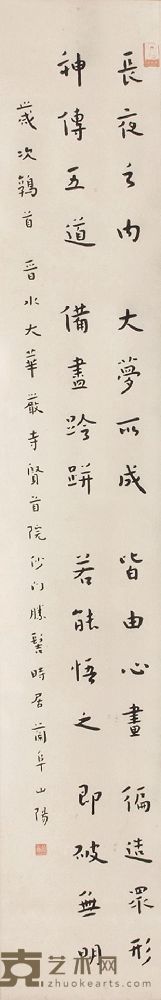 長夜之內 大夢所成 皆由心畫 徧造眾形
神傳五道 備盡跉跰 若能悟之 即破無明
歲次鶉首 晉水大華嚴寺賢首院沙門勝髻時居蘭阜山陽
艺术网
zhuokearts.com